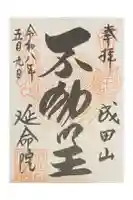 奉拝
成田山
不動明王
令和八年
五月九日
延命院